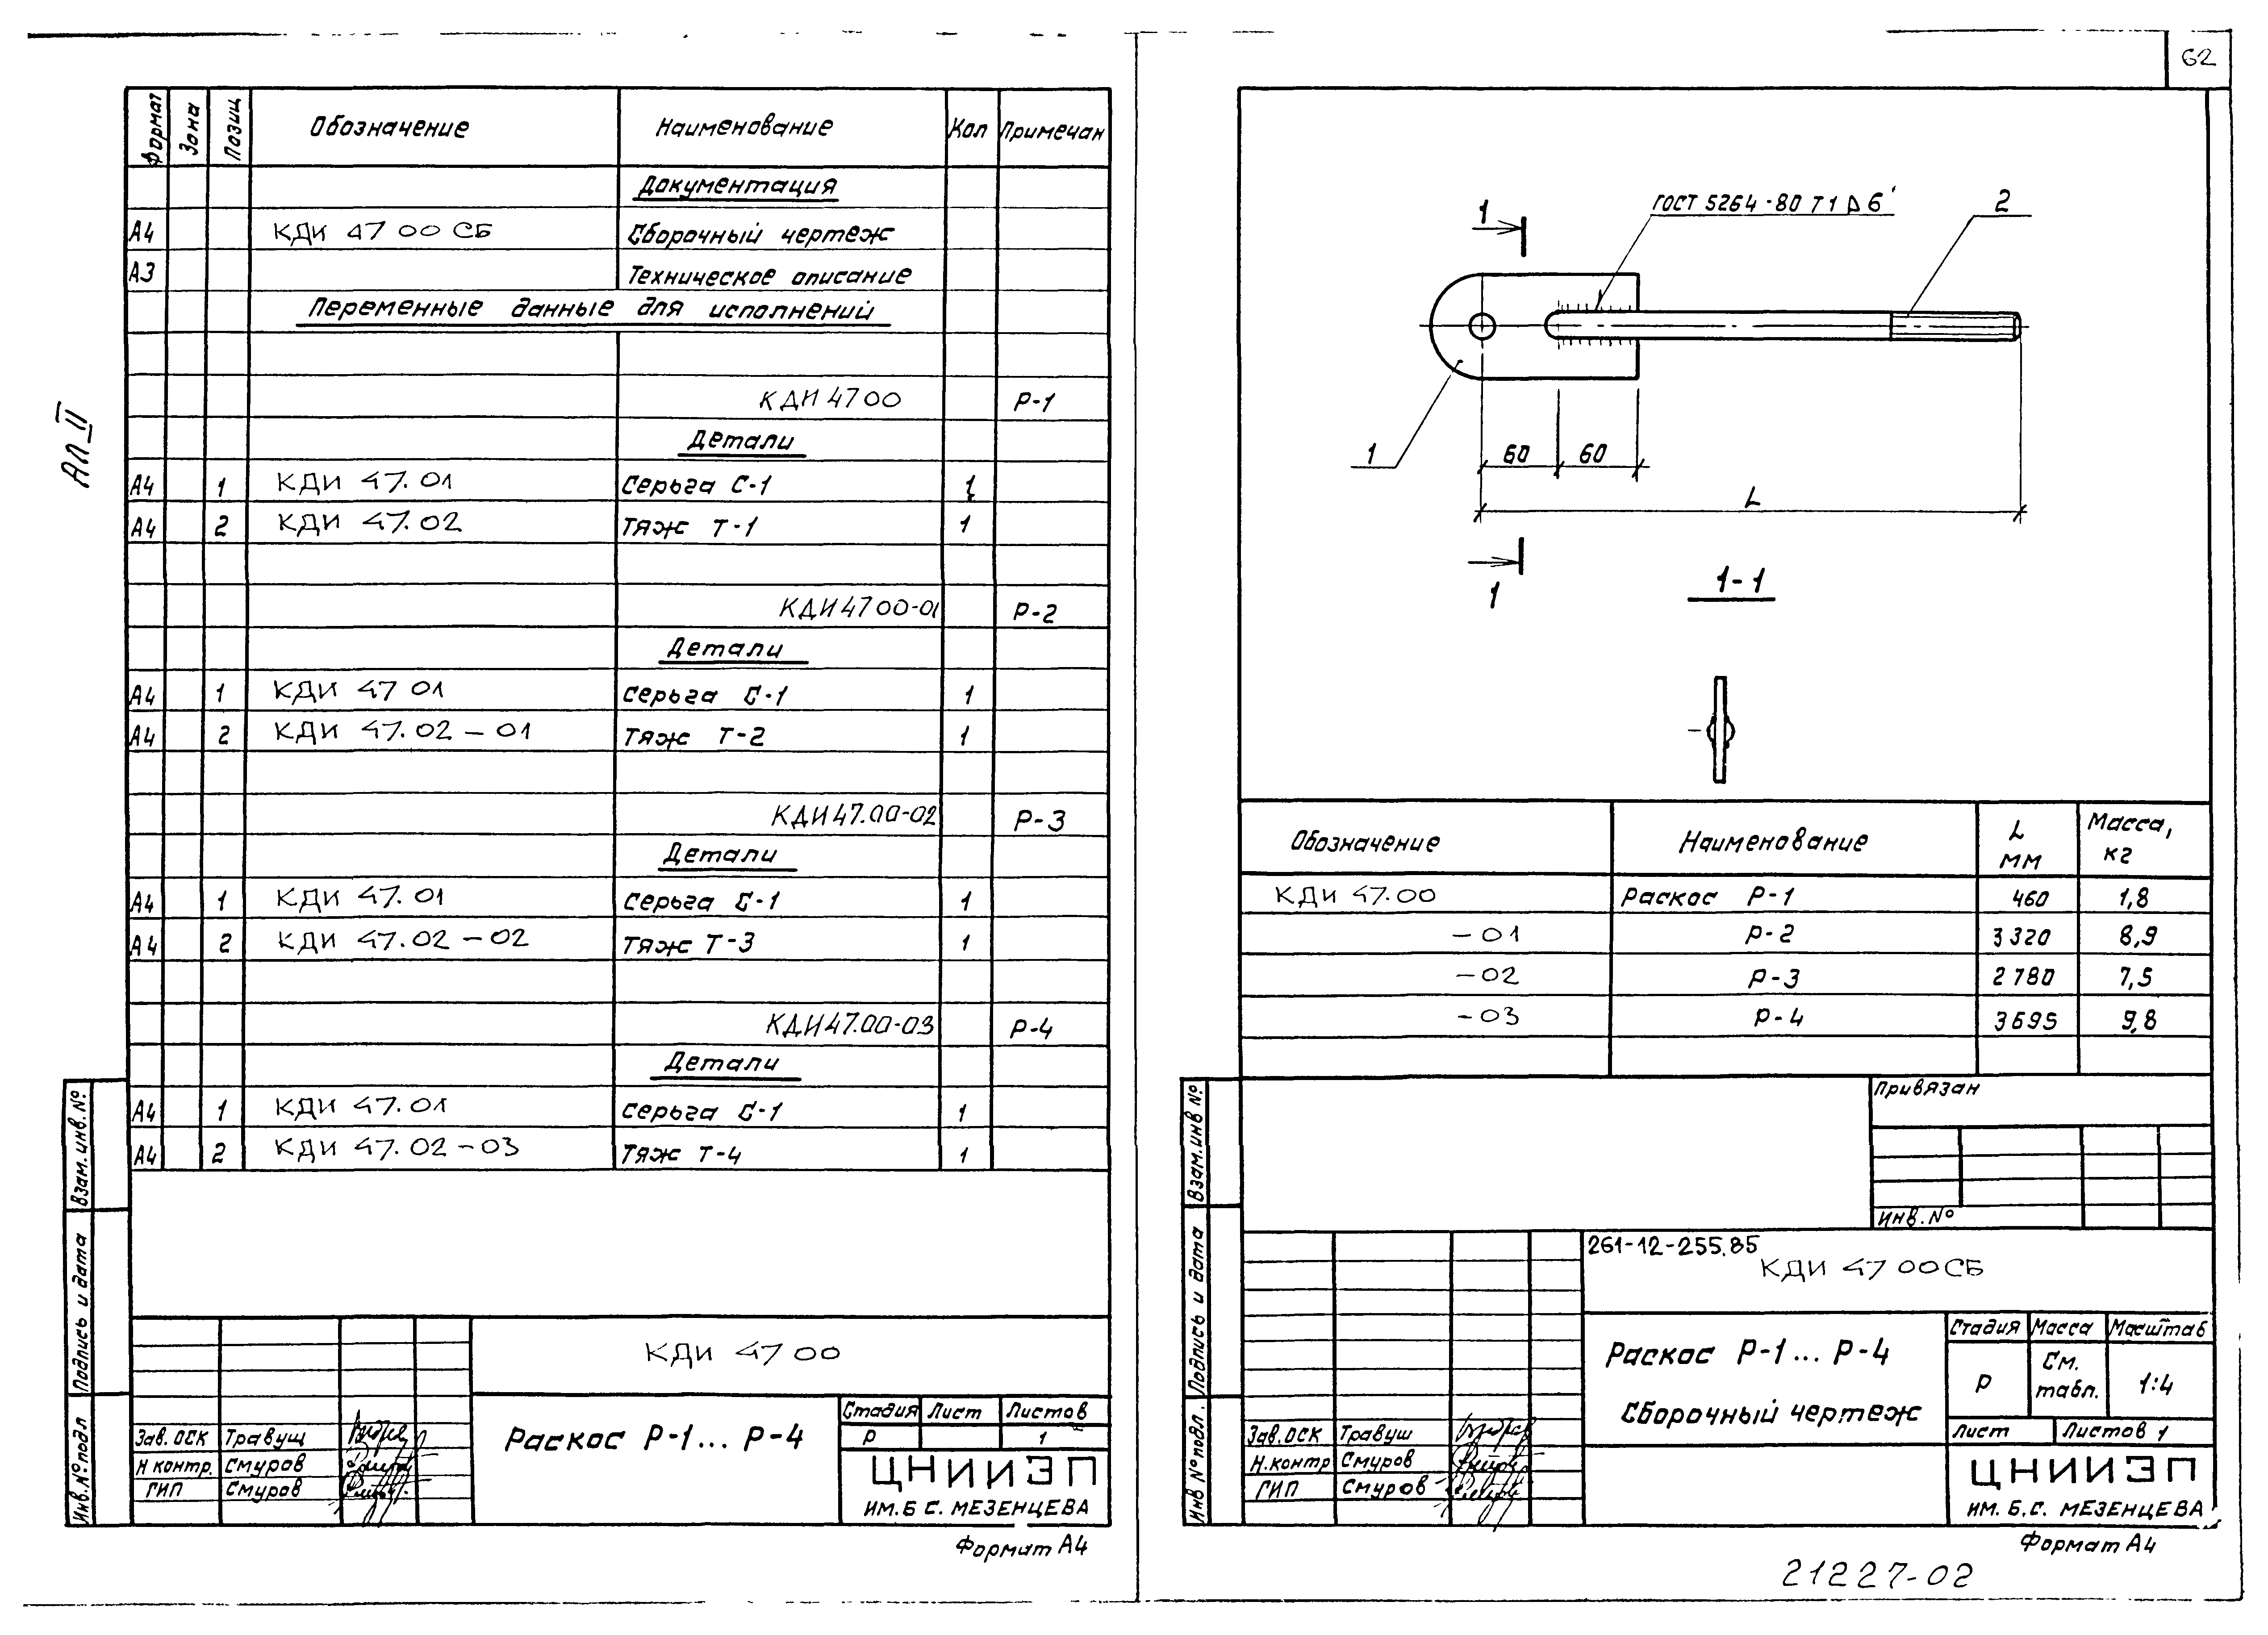 62
Ал II
Формат Зона Позиц Обозначение Наименование Кол Примечан
Документация
А4 КДИ 47 00 СБ Сборочный чертеж
А3 Техническое описание
Переменные данные для исполнений
КДИ 47 00 Р-1
Детали
А4 1 КДИ 47.01 Серьга С-1 1
А4 2 КДИ 47.02 Тяж Т-1 1
КДИ 47 00-01 Р-2
Детали
А4 1 КДИ 47 01 Серьга С-1 1
А4 2 КДИ 47.02-01 Тяж Т-2 1
КДИ 47.00-02 Р-3
Детали
А4 1 КДИ 47.01 Серьга С-1 1
А4 2 КДИ 47.02-02 Тяж Т-3 1
КДИ 47.00-03 Р-4
Детали
А4 1 КДИ 47.01 Серьга С-1 1
А4 2 КДИ 47.02-03 Тяж Т-4 1
Взам. инв. №
Подпись и дата
Инв. № подл
КДИ 47 00
Раскос Р-1... Р-4
Стадия Лист Листов
Р 1
Зав. ОСК Травуш
Н контр. Смуров
ГИП Смуров
ЦНИИЭП
ИМ. Б С. МЕЗЕНЦЕВА
Формат А4
1
ГОСТ 5264-80 Т1 ⊿ 6
2
1
60 60
L
1
1-1
Обозначение Наименование L мм Масса, кг
КДИ 47.00 Раскос Р-1 460 1,8
-01 Р-2 3320 8,9
-02 Р-3 2780 7,5
-03 Р-4 3695 9,8
Привязан
Инв. №
Взам. инв №
Подпись и дата
Инв № подл.
261-12-255.85
КДИ 47 00 СБ
Раскос Р-1... Р-4
Сборочный чертеж
Стадия Масса Масштаб
Р См. табл. 1:4
Лист Листов 1
Зав. ОСК Травуш
Н. контр Смуров
ГИП Смуров
ЦНИИЭП
ИМ. Б.С. МЕЗЕНЦЕВА
Формат А4
21227-02